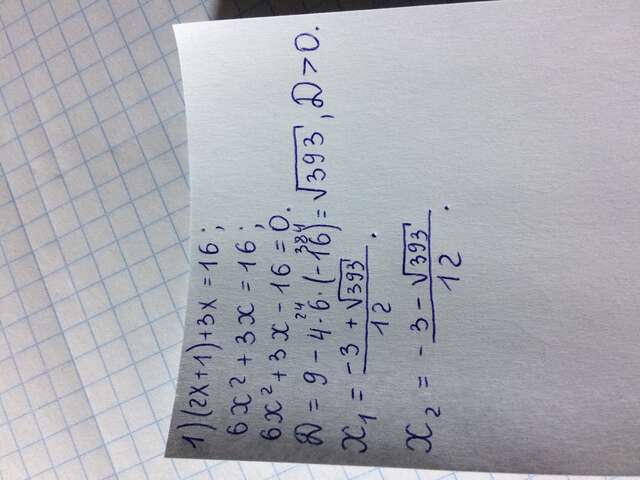 1) (2x+1)+3x = 16;
6x² + 3x = 16;
6x² + 3x - 16 = 0.
24 384
D = 9 - 4·6·(-16) = √393, D > 0.
x₁ = (-3 + √393)/12.
x₂ = -(3 - √393)/12.